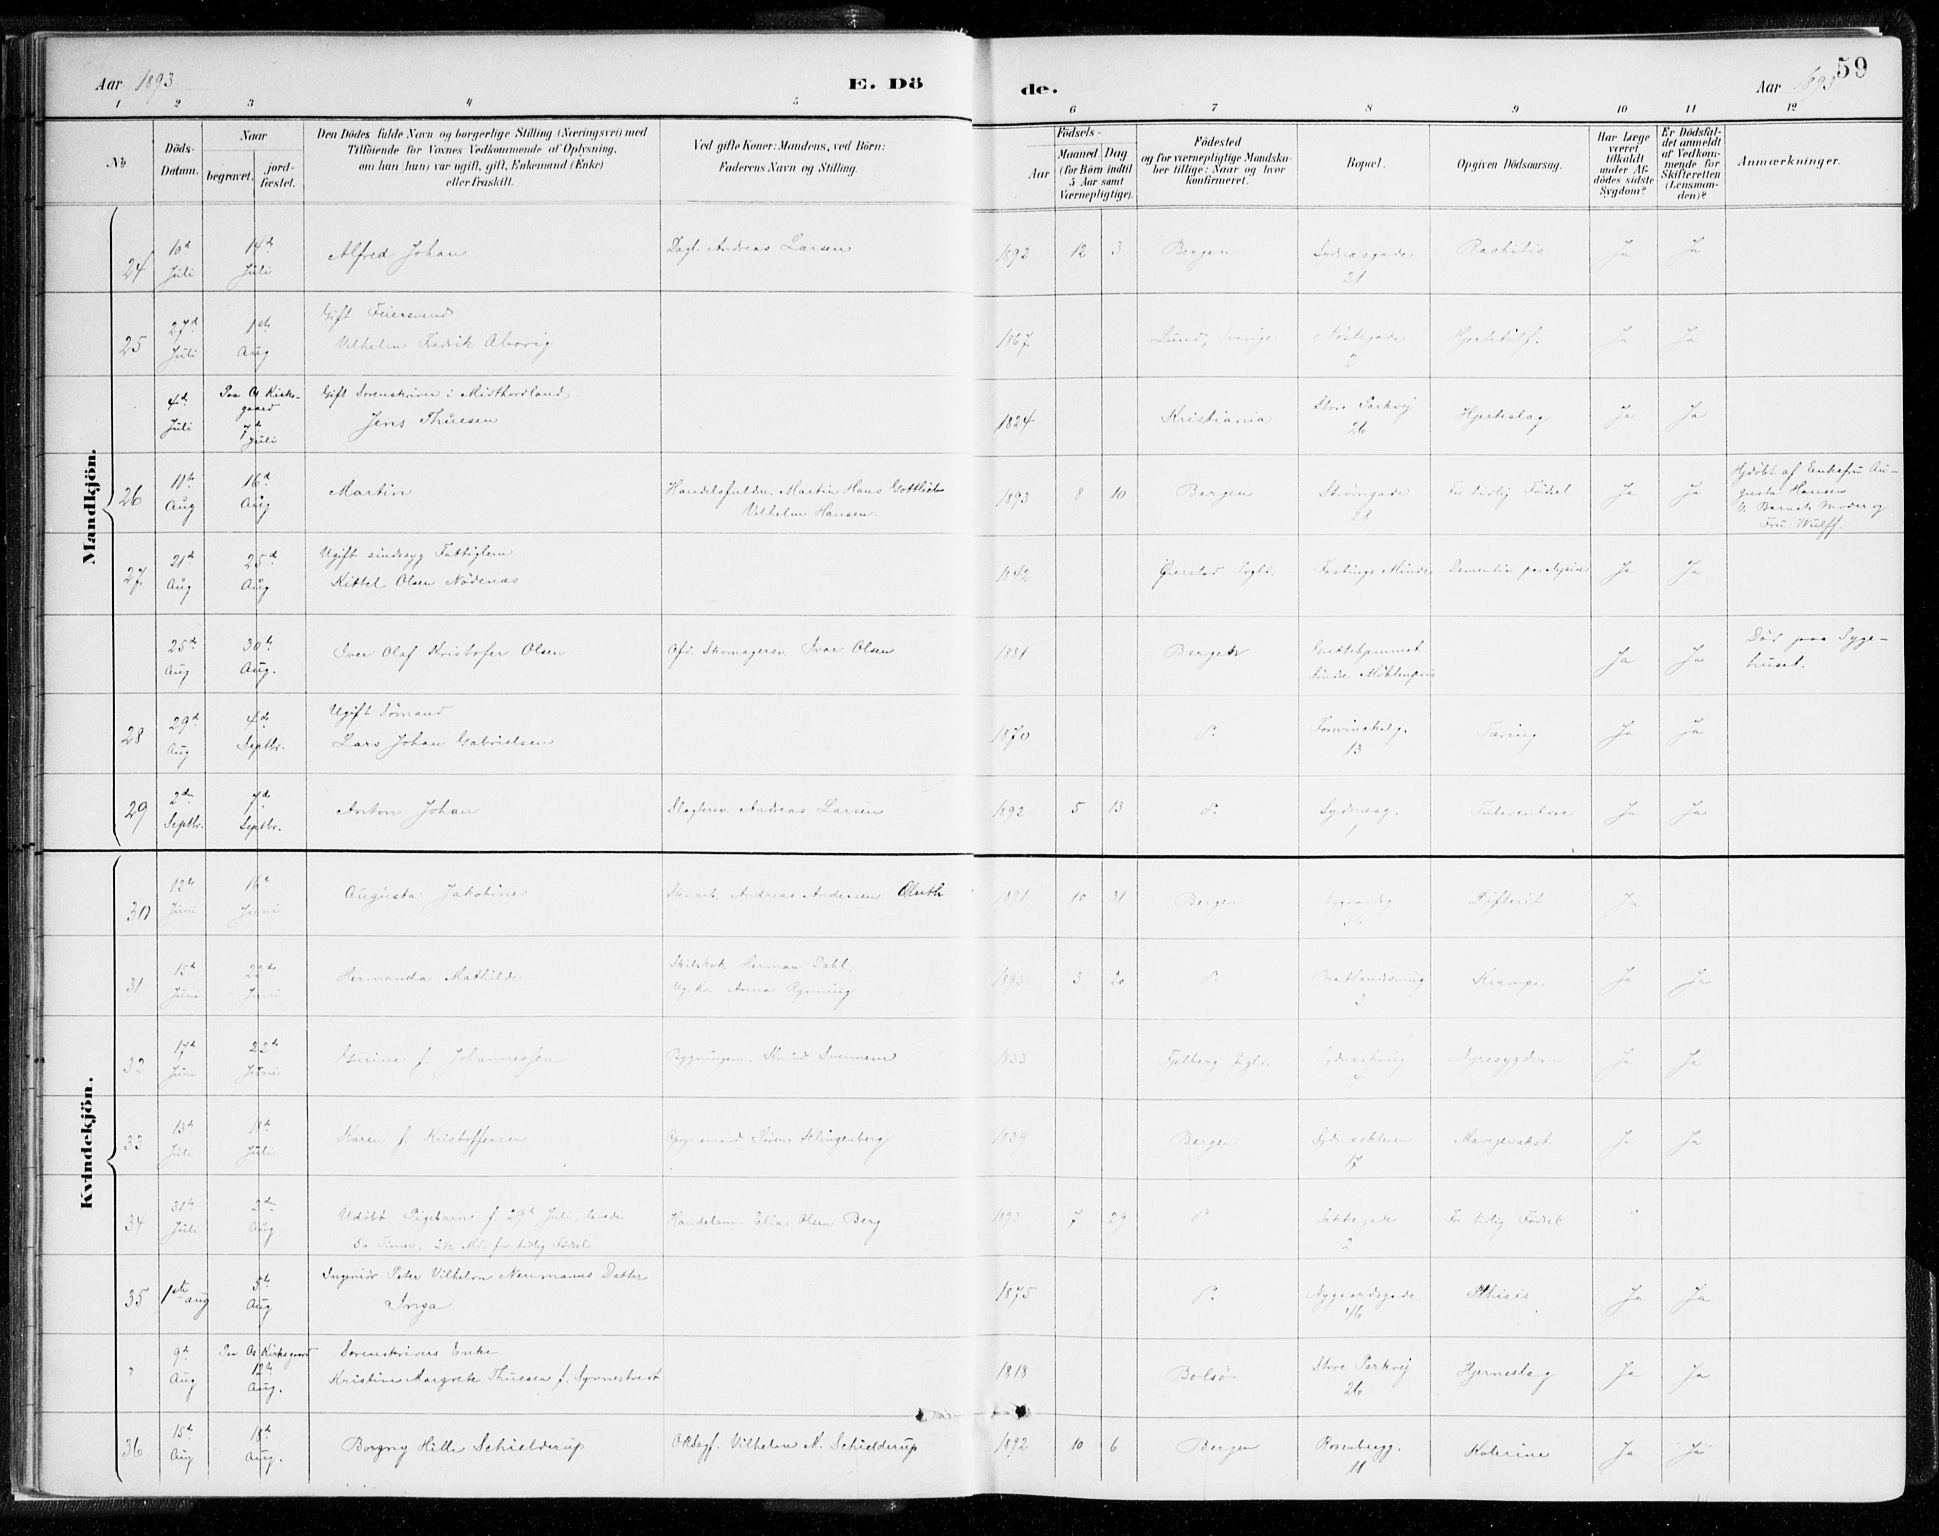 Aar 1893
E. Dö
de.
Aar 1893
59
1 2 3 4 5 6 7 8 9 10 11 12
№
Döds-Datum.
Naar
begravet.
jord-fæstet.
Den Dödes fulde Navn og borgerlige Stilling (Næringsvei) med
Tilföiende for Voxnes Vedkommende af Oplysning,
om han (hun) var ugift, gift, Enkemand (Enke)
eller fraskilt.
Ved gifte Koner: Mandens, ved Börn:
Faderens Navn og Stilling.
Födsels-
Aar
Maaned Dag
(for Börn indtil
5 Aar samt
Værnepligtige).
Födested
og for værnepligtige Mandska-
ber tillige: Naar og hvor
konfirmeret.
Bopæl.
Opgiven Dödsaarsag.
Har Læge
været
tilkaldt
under Af-
dödes sidste
Sygdom?
Er Dödsfal-
det anmeldt
af Vedkom-
mende for
Skifteretten
(Lensman-
den)?
Anmærkninger.
Mandkjön.
24 10d Juli 14d Juli Alfred Johan Dagl. Andreas Larsen 1892 12 3 Bergen Sydnæsgade 21 Rachitis Ja Ja
25 27d Juli 1ste Aug Gift Feiersvend
Vilhelm Fredrik 1867 Lund, Sverige Nöstegade 2 Hjertelif. Ja Ja
4de Juli Paa Os Kirke-
gaard 7de Juli Gift Sorenskriver i Midthordland
Jens Thuesen 1824 Kristiania Store Parkvej 26 Hjerteslag Ja Ja
26 11te Aug 16d Aug Martin Handelsfuldm. Martin Hans Gottlieb
Vilhelm Hansen. 1893 8 10 Bergen Strömgade 28 For tidlig Födsel Ja Ja Hjdöbt af Enkefru Au-
gusta Hansen
V. Barnets Moder og
Fru Wulff.
27 21d Aug 25d Aug Ugift sindssyg Fattiglem
Kittel Olsen Nödenæs 1842 Öierstad Prgld. Fastings Minde Dementia paralytica Ja Ja
25d Aug 30te Aug. Iver Olaf Kristofer Olsen Afd. Skomagersv. Ivar Olsen 1881 Bergen Gutttehjemmet
Söndre Möhlenpris Ja Ja Död paa Syge-
huset.
28 29d Aug 4de Septbr. Ugift Sömand
Lars Johan Gabrielsen 1870 d. 13 Tæring Ja Ja
29 2den Septbr. 7d Septbr. Anton Johan Andreas Larsen 1892 5 13 d. Sydnæsg. 1 Ja Ja
Kvindekjön.
30 12te Juni 16de Juni Augusta Jakobine Andreas Andersen Oluth 1891 10 31 Bergen Nygaardsg. 56 Difterit Ja
31 15d Juni 22de Juni Hermanda Mathilde Skibskok Herman Dahl
Ug. Kv. Anna Rynning 1893 3 20 d. 3 Krampe Ja Ja
32 17d Juni 22de Juni Gurine f. Johannessen Bygningsm. Knud 1833 Fjelberg Prgld. 4 Nyresygdom Ja Ja
33 13d Juli 18d Juli Karen f. Kristoffersen Opsynsmand Sören Klingenberg 1839 Bergen Sydnæskleven 17 Mavegevækst Ja Ja
34 30te Juli 2den Aug Udöbt Pigebarn f. 29d Juli, levede
56 Timer, 2½ Md. for tidlig Födsel Handelsm. Elias Olsen Berg 1893 7 29 d. 2 For tidlig Födsel "
35 1ste aug 5te Aug Ingeniör Peter Vilhelm Neumanns Datter
Inga 1875 d. Nygaardsgade 46 Pthisis Ja Ja
" 9d Aug Paa Os Kirkegaard 12te Aug. Sorenskrivers Enke
Kristine Margrete Thuesen f. Synnestvedt 1818 Bolsö Store Parkvej 26 Hjerneslag Ja Ja
36 15d Aug 18d Aug. Borgny Hille Schielderup Vilhelm A. Schielderup 1892 10 6 Bergen Rosenbergg. 11 Kolerine Ja Ja